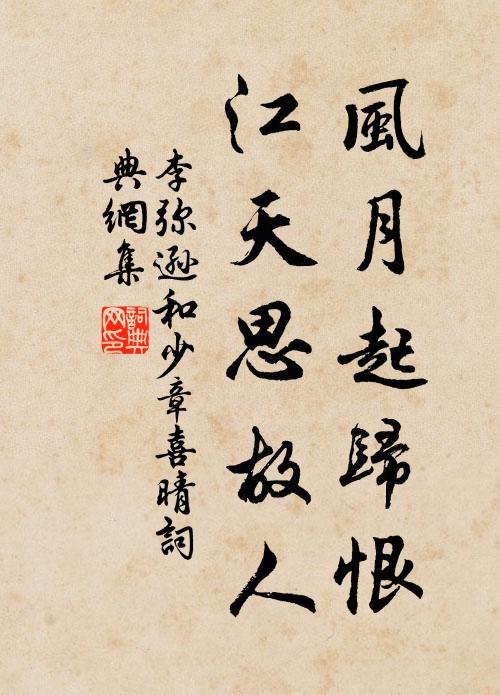 風月起歸恨
江天思故人
李弥遜和少章喜晴詞
典網集
詞典网印